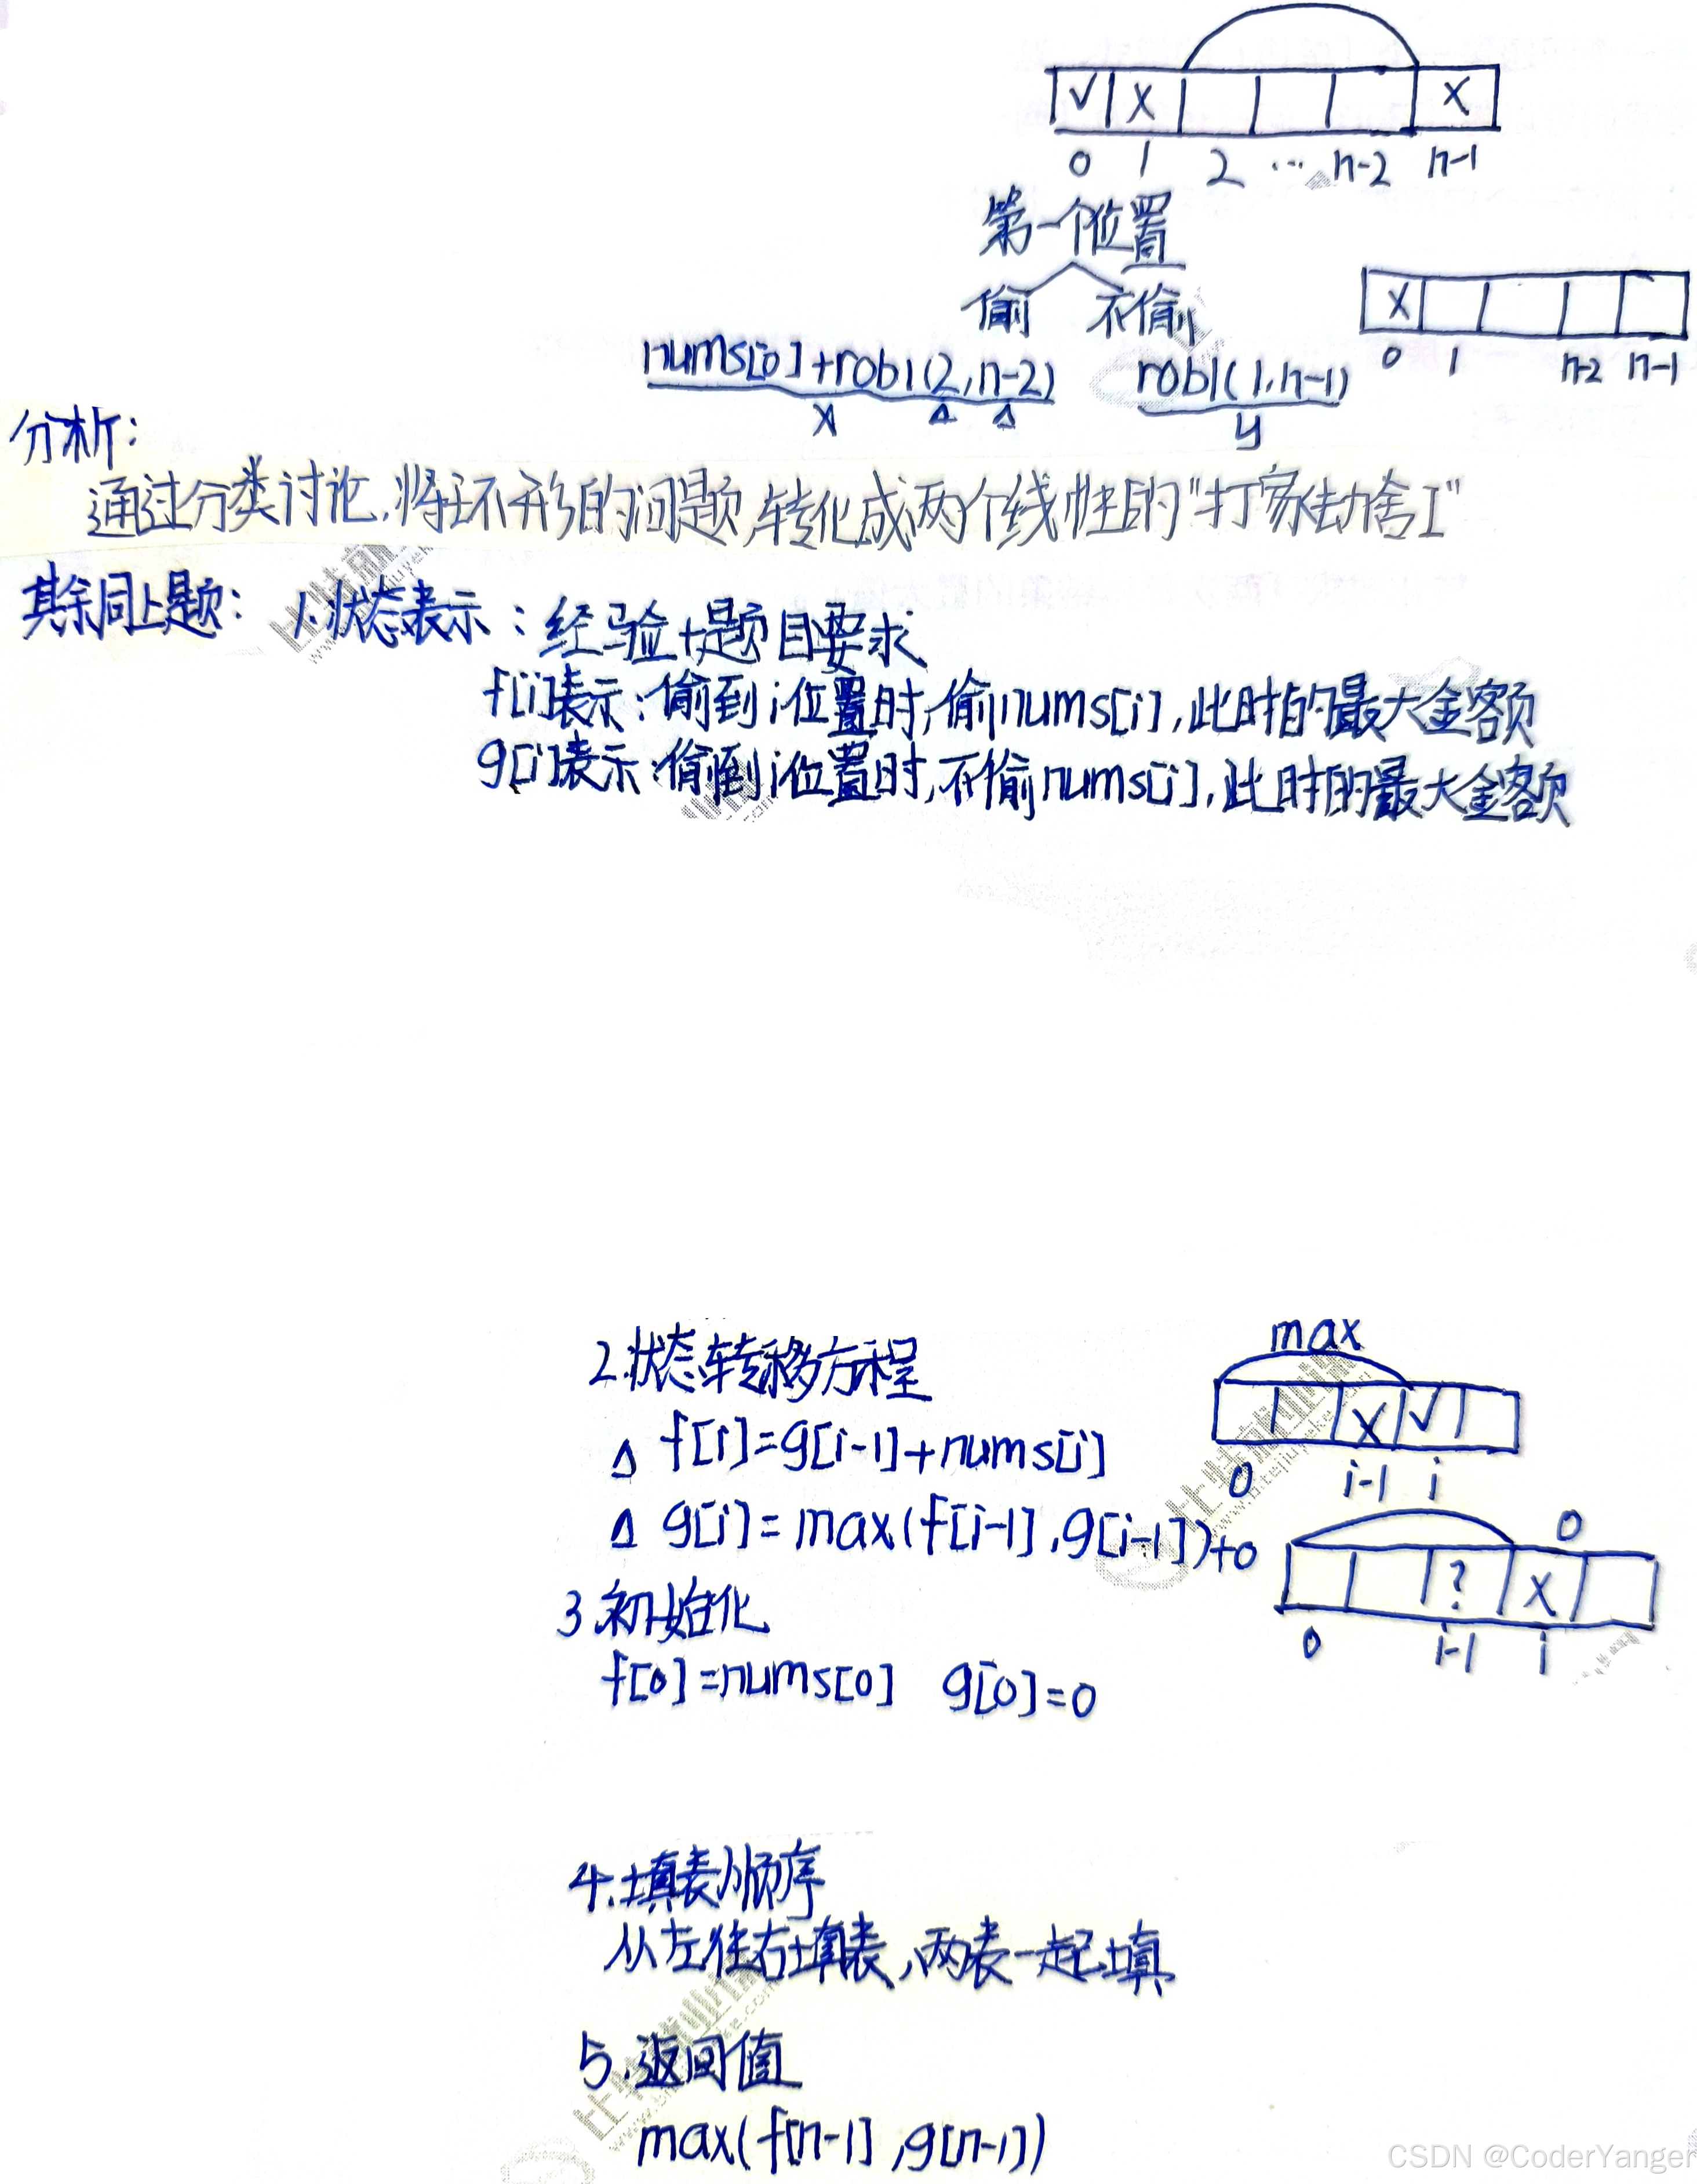 ✓ X X
0 1 2 ... n-2 n-1
第一个位置
偷 不偷
X
0 1 n-2 n-1
nums[0]+rob1(2,n-2) rob1(1,n-1)
x y
分析:
通过分类讨论,将环形的问题,转化成两个线性的"打家劫舍I"
其余同上题: 1.状态表示: 经验+题目要求
f[i]表示:偷到i位置时,偷nums[i],此时的最大金额
g[i]表示:偷到i位置时,不偷nums[i],此时的最大金额
2.状态转移方程
max
f[i]=g[i-1]+nums[i]
X ✓
0 i-1 i
g[i]=max(f[i-1],g[i-1])+0
0
? X
0 i-1 i
3.初始化
f[0]=nums[0] g[0]=0
4.填表顺序
从左往右填表,两表一起填
5.返回值
max(f[n-1],g[n-1])
CSDN @CoderYanger